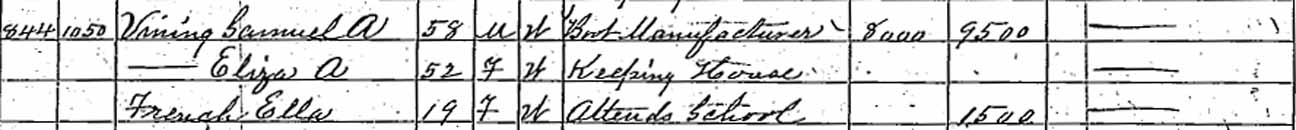 844 1050 Vining Samuel A 58 M W Boot Manufacturer 8000 9500 —
— Eliza A 52 F W Keeping House —
French Ella 19 F W Attends School 1500 —